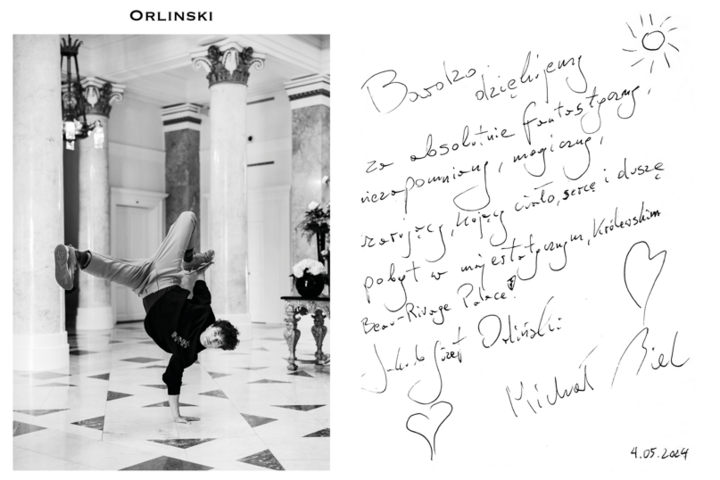 ORLINSKI
Bardzo dziękujemy
za absolutnie fantastyczny,
niezapomniany, magiczny,
czarujący, kojący ciało, serce i duszę
pobyt w majestatycznym, królewskim
Beau-Rivage Palace!
Jakub Józef Orliński
Michał Biel
4.05.2024